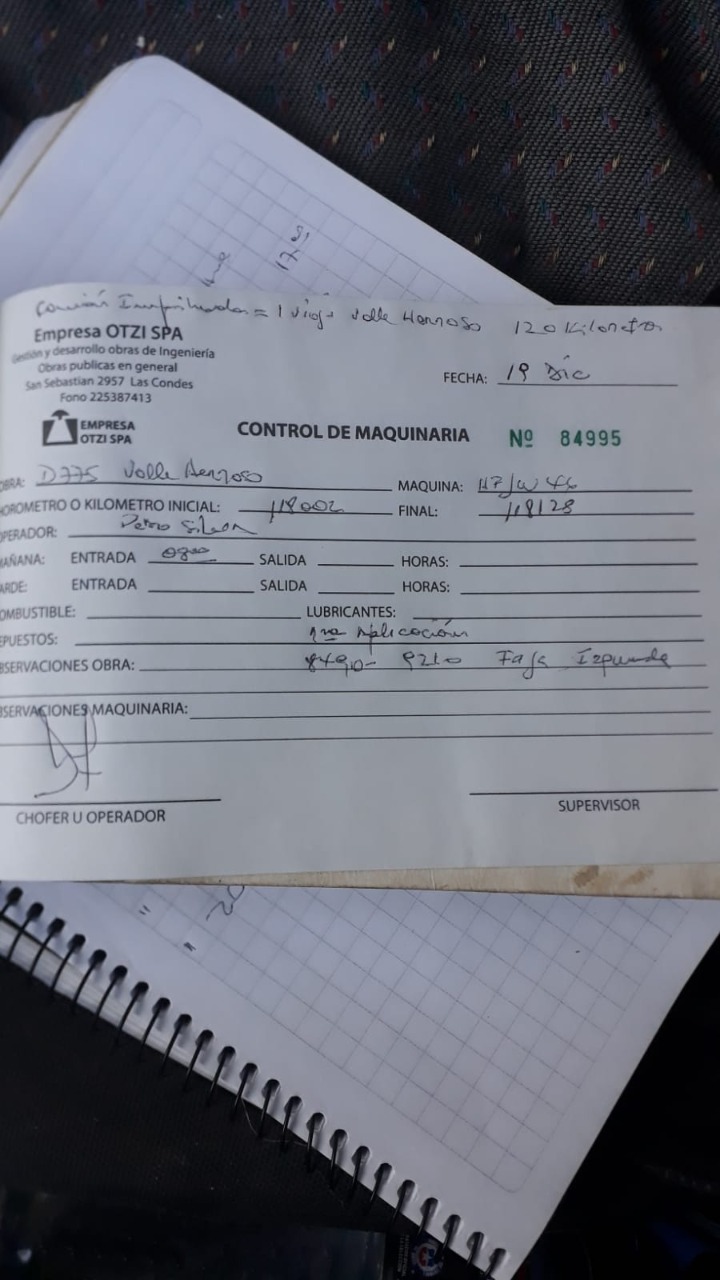 Camión Imprimador = 1 viaje Valle Hermoso 120 Kilometros
Empresa OTZI SPA
Gestión y desarrollo obras de Ingeniería
Obras publicas en general
San Sebastian 2957 Las Condes
Fono 225387413
FECHA: 19 Dic
EMPRESA
OTZI SPA
CONTROL DE MAQUINARIA Nº 84995
OBRA: D775 Valle Hermoso MAQUINA:
HOROMETRO O KILOMETRO INICIAL: 118002 FINAL: 118128
OPERADOR: Pedro
MAÑANA: ENTRADA 0800 SALIDA HORAS:
TARDE: ENTRADA SALIDA HORAS:
COMBUSTIBLE: LUBRICANTES:
REPUESTOS: 1ra Aplicación
OBSERVACIONES OBRA: 8490- 9210 Faja Izquierda
OBSERVACIONES MAQUINARIA:
CHOFER U OPERADOR SUPERVISOR